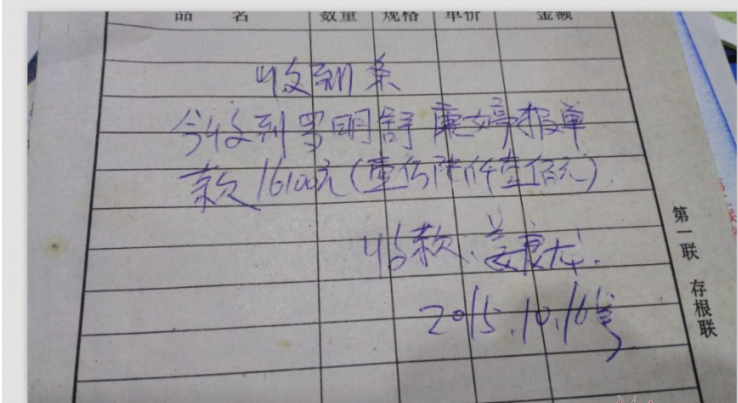 品 名 数量 规格 单价 金额
收到条
今收到罗明舒 康婷报单
款16100元(壹万陆仟壹佰元).
收款:姜良龙.
2015.10.16号
第一联 存根联